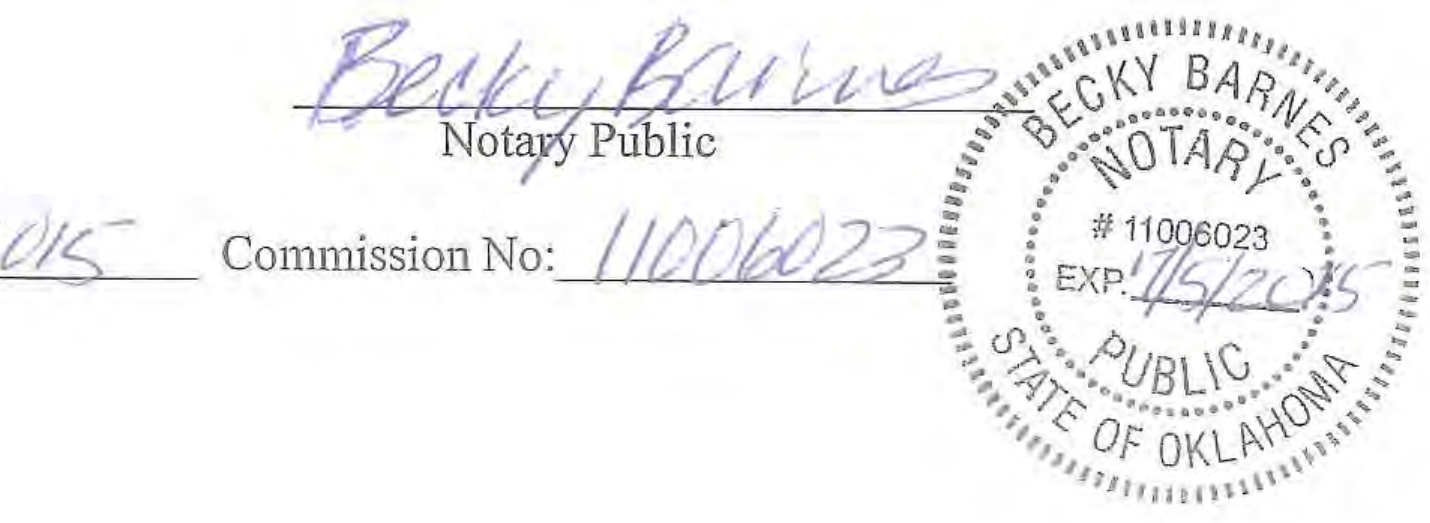 Becky Barnes
Notary Public
015 Commission No: 11006023
BECKY BARNES
NOTARY
# 11006023
EXP. 7/5/2015
PUBLIC
STATE OF OKLAHOMA